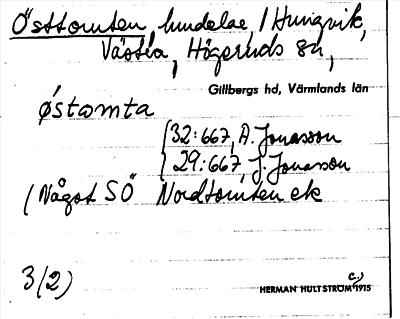 Östtomten, lundelae, / Hungvik,
Västra, Högeruds sn,
Gillbergs hd, Värmlands län
ǿstɷmta
32:667, A. Jonasson
29:667, J. Jonasson
(Något SÖ Nordtomten ek
3(2)
C.)
HERMAN HULTSTRÖM 1915